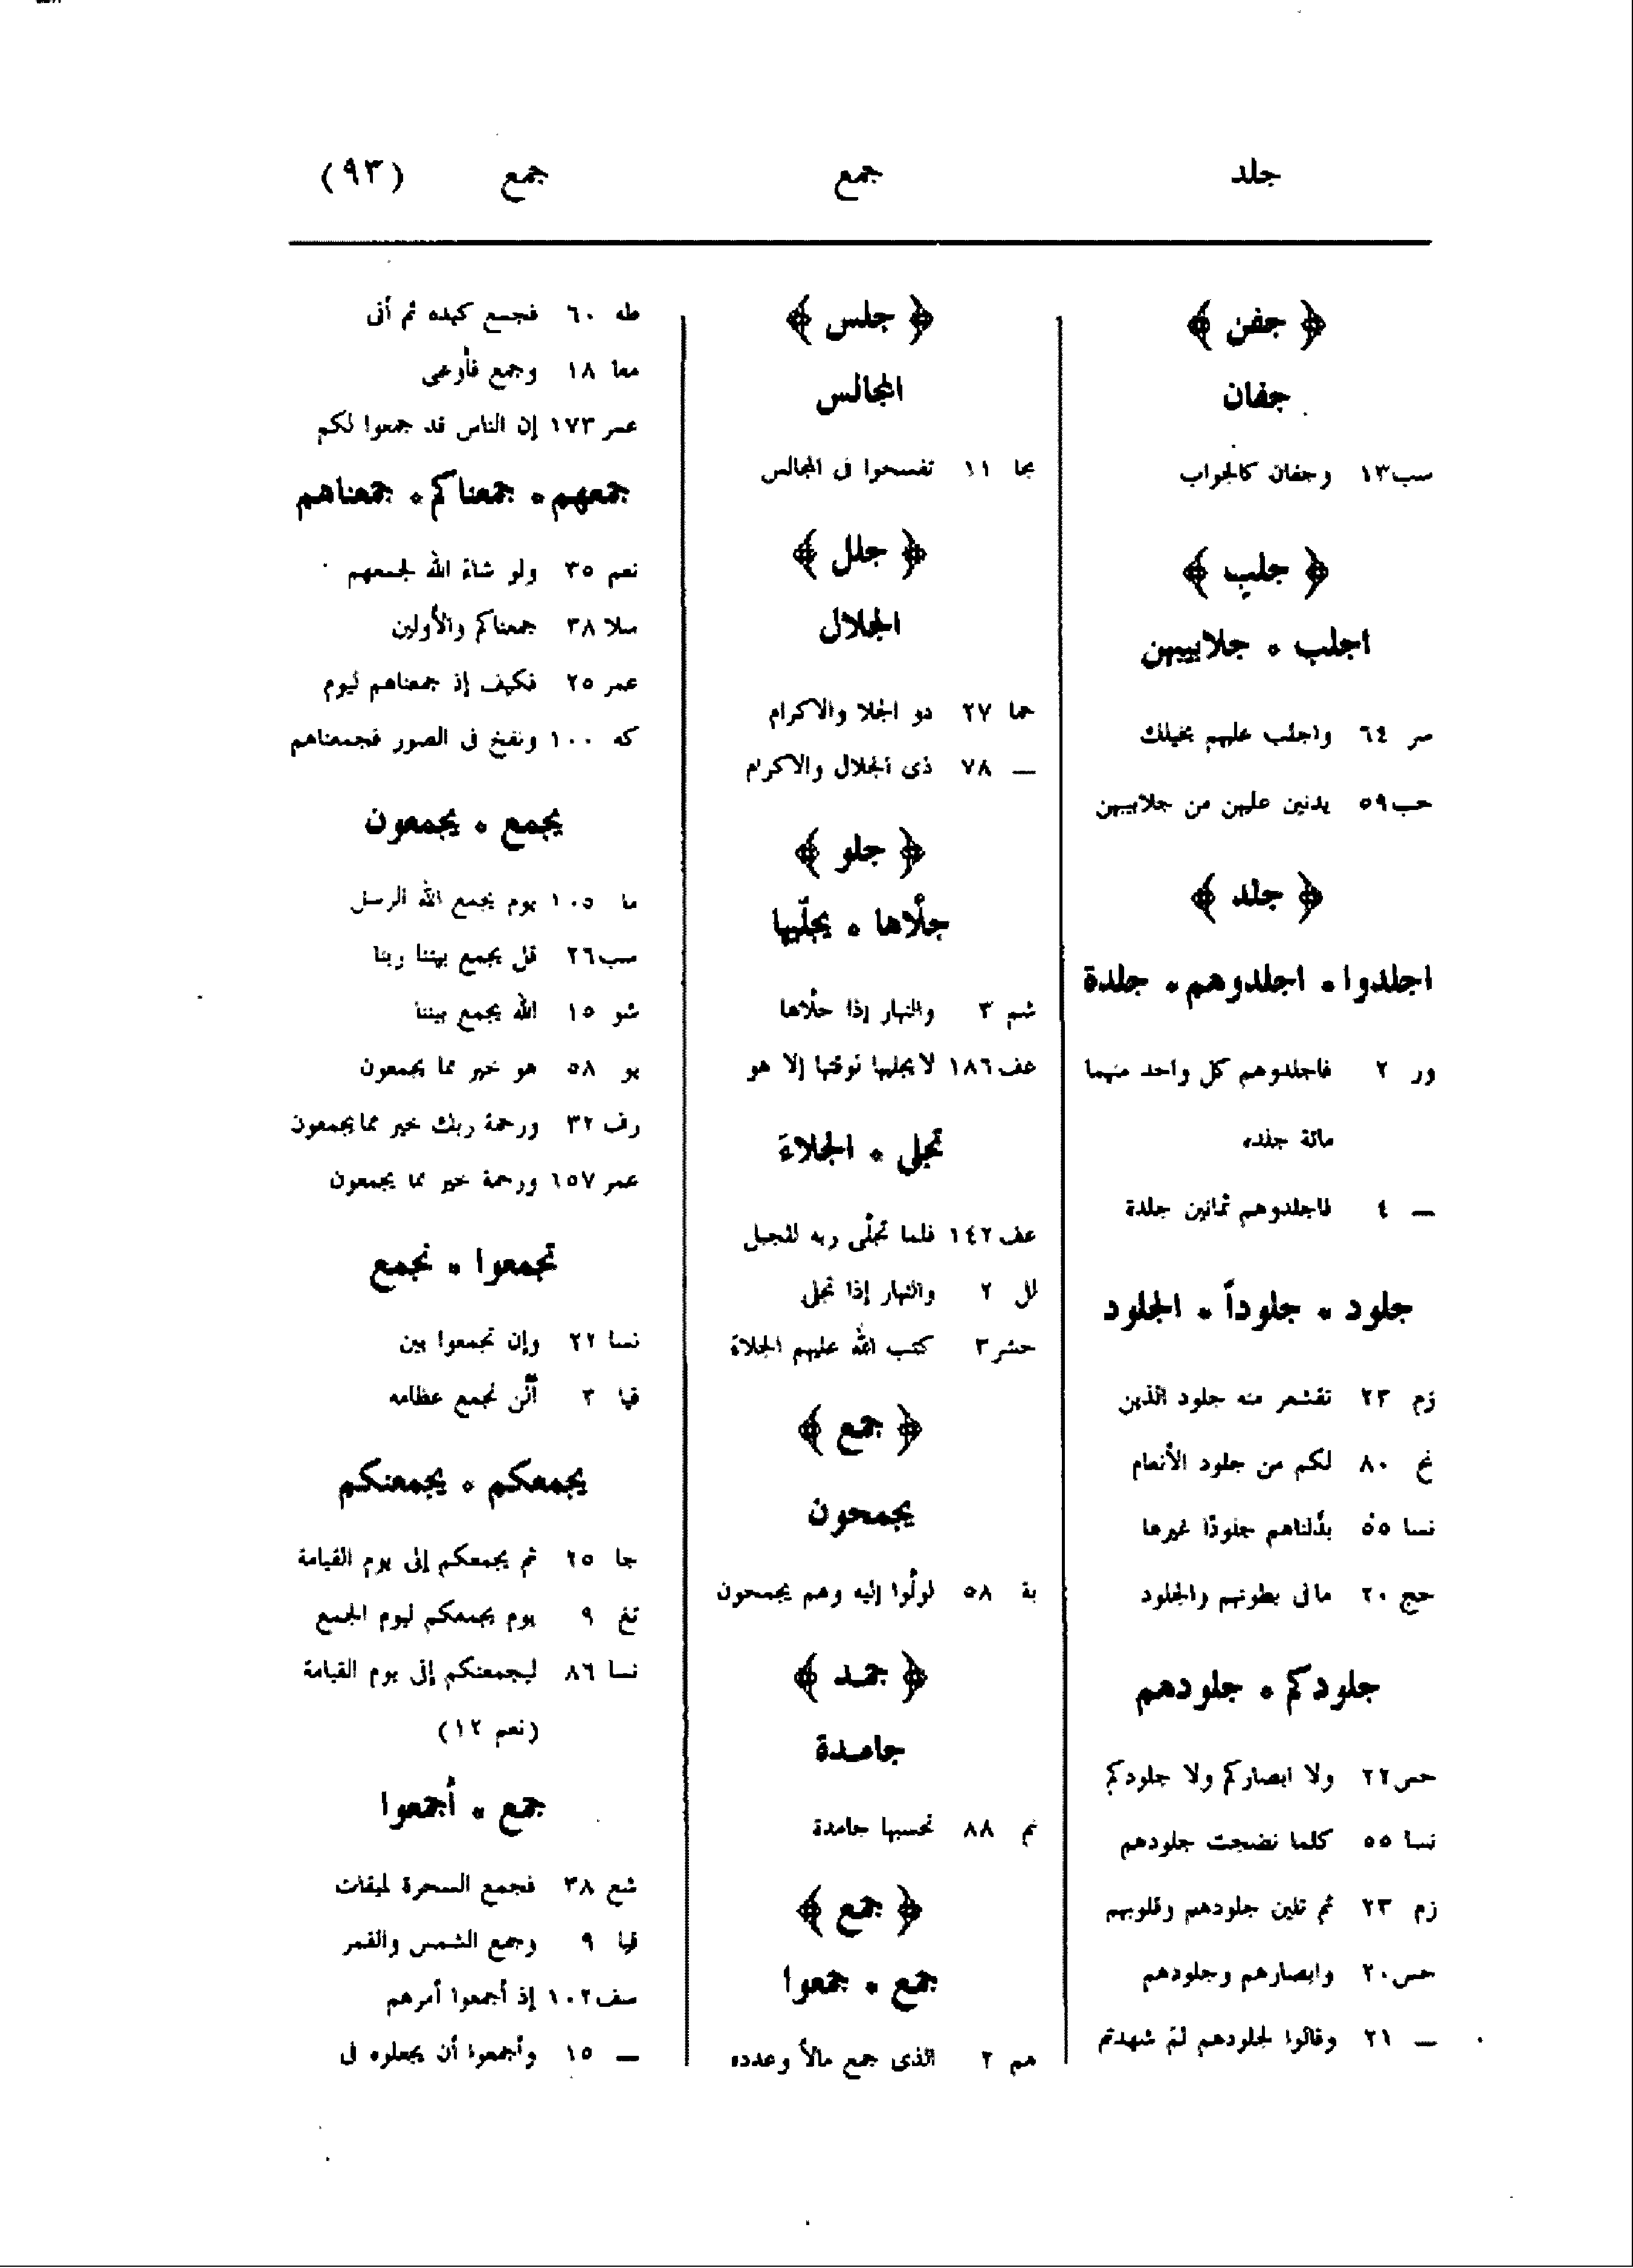 جلد جمع جمع (٩٣)
﴿ جفن ﴾
جفان
سب١٣ وجفان كالجواب
﴿ جلب ﴾
اجلب ٠ جلابيبهن
سر ٦٤ واجلب عليهم بخيلك
حب٥٩ يدنين عليهن من جلابيبهن
﴿ جلد ﴾
اجلدوا ٠ اجلدوهم ٠ جلدة
ور ٢ فاجلدوهم كل واحد منهما
مائة جلده
— ٤ فاجلدوهم ثمانين جلدة
جلود ٠ جلوداً ٠ الجلود
زم ٢٣ تقشعر منه جلود الذين
نح ٨٠ لكم من جلود الأنعام
نسا ٥٥ بدّلناهم جلودًا غيرها
حج ٢٠ مافى بطونهم والجلود
جلودكم ٠ جلودهم
حس٢٢ ولا ابصاركم ولا جلودكم
نسا ٥٥ كلما نضجت جلودهم
زم ٢٣ ثم تلين جلودهم وقلوبهم
حس٢٠ وابصارهم وجلودهم
— ٢١ وقالوا لجلودهم لمَ شهدتم
﴿ جلس ﴾
المجالس
مجا ١١ تفسحوا فى المجالس
﴿ جلل ﴾
الجلال
حما ٢٧ ذو الجلا والاكرام
— ٧٨ ذى الجلال والاكرام
﴿ جلو ﴾
جلّاها ٠ يجلّيها
شم ٣ والنهار إذا جلّاها
عف١٨٦ لايجليها لوقتها إلا هو
تجلى ٠ الجلاءَ
عف١٤٢ فلما تجلّى ربه للجبل
لل ٢ والنهار إذا تجلى
حشر٣ كتب الله عليهم الجلاءَ
﴿ جمح ﴾
يجمحون
بة ٥٨ لولّوا إليه وهم يجمحون
﴿ جمد ﴾
جامدة
نم ٨٨ تحسبها جامدة
﴿ جمع ﴾
جمع ٠ جمعوا
هم ٢ الذى جمع مالاً وعدده
طه ٦٠ فجمع كيده ثم أتى
معا ١٨ وجمع فأوعى
عمر ١٧٣ إن الناس قد جمعوا لكم
جمعهم ٠ جمعناكم ٠ جمعناهم
نعم ٣٥ ولو شاءَ الله لجمعهم
سلا ٣٨ جمعناكم والأولين
عمر ٢٥ فكيف إذ جمعناهم ليوم
كه ١٠٠ ونفخ فى الصور فجمعناهم
يجمع ٠ يجمعون
ما ١٠٥ يوم يجمع الله الرسل
سب٢٦ قل يجمع بيننا ربنا
شو ١٥ الله يجمع بيننا
يو ٥٨ هو خير مما يجمعون
رف ٣٢ ورحمة ربك خير ممايجمعون
عمر ١٥٧ ورحمة خير مما يجمعون
تجمعوا ٠ نجمع
نسا ٢٢ وإن تجمعوا بين
قيا ٣ ألّن نجمع عظامه
يجمعكم ٠ يجمعنكم
جا ٢٥ ثم يجمعكم إلى يوم القيامة
تغ ٩ يوم يجمعكم ليوم الجمع
نسا ٨٦ ليجمعنكم إلى يوم القيامة
(نعم ١٢)
جمع ٠ أجمعوا
شع ٣٨ فجمع السحرة لميقات
قيا ٩ وجمع الشمس والقمر
سف١٠٢ إذ أجمعوا أمرهم
— ١٥ وأجمعوا أن يجعلوه فى